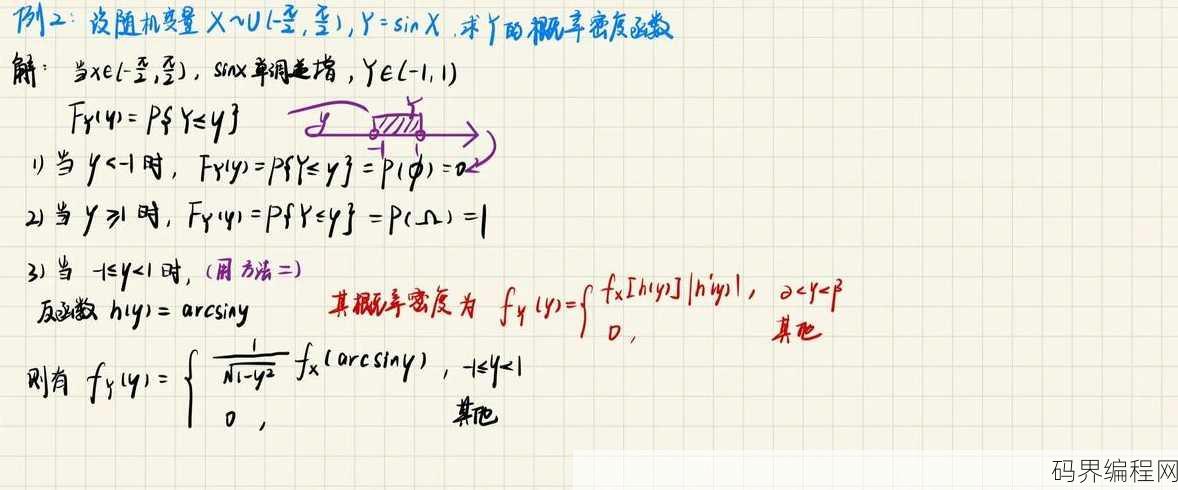 例2: 设随机变量 X~U(-π/2, π/2), Y=sinX. 求Y的概率密度函数
解: 当x∈(-π/2, π/2), sinx单调递增, Y∈(-1,1)
F_Y(y)=P{Y≤y}
y -1 1 Y
1) 当 y<-1 时, F_Y(y)=P{Y≤y}=P(∅)=0
2) 当 y≥1 时, F_Y(y)=P{Y≤y}=P(Ω)=1
3) 当 -1≤y<1 时, (用方法二)
反函数 h(y)=arcsiny
其概率密度为 f_Y(y)={ f_X[h(y)]|h'(y)|, α<y<β
0, 其他
则有 f_Y(y)={ 1/√(1-y²) f_X(arcsiny), -1≤y<1
0, 其他
码界编程网